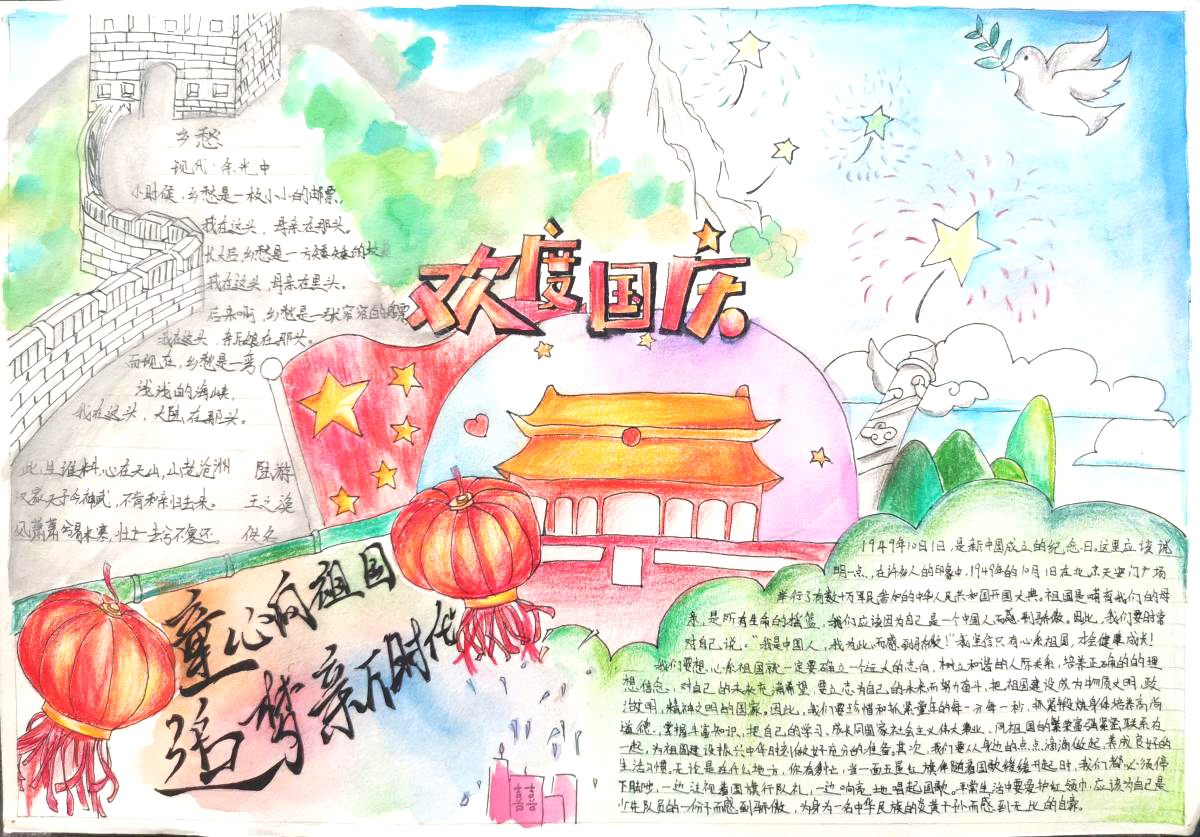 乡愁
现代·余光中
小时候，乡愁是一枚小小的邮票，
我在这头，母亲在那头。
长大后，乡愁是一方矮矮的坟
我在这头 母亲在里头。
后来啊，乡愁是一张窄窄的船票
我在这头，新娘在那头。
而现在，乡愁是一湾
浅浅的海峡，
我在这头，大陆在那头。
此生谁料，心在天山，身老沧洲 陆游
汉家天子今神武，不肯和亲归去来。 王之涣
风萧萧兮易水寒，壮士一去兮不复还 佚名
欢度国庆
童心向祖国
追梦新时代
1949年10月1日，是新中国成立的纪念日。这里应该说
明一点，在许多人的印象中，1949年的10月1日在北京天安门广场
举行了有数十万军民参加的中华人民共和国开国大典。祖国是哺育我们的母
亲，是所有生命的摇篮，我们应该因为自己是一个中国人而感到骄傲。因此，我们要时常
对自己说：“我是中国人，我为此而感到骄傲！”我坚信只有心系祖国，才会健康成长！
我们要想，心系祖国就一定要确立一个远大的志向，树立和谐的人际关系，培养正确的的理
想信念，对自己的未来充满希望，要立志为自己的未来而努力奋斗，把祖国建设成为物质文明，政
治文明，精神文明的国家。因此，我们要珍惜和抓紧童年的每一分每一秒，抓紧锻炼身体培养高尚
道德，掌握丰富知识，把自己的学习、成长同国家社会主义伟大事业、同祖国的繁荣富强紧密联系在
一起，为祖国建设振兴中华时刻做好充分的准备。其次，我们要从身边的点点滴滴做起，养成良好的
生活习惯。无论是在什么地方，你看到，当一面五星红旗伴随着国歌缓缓升起时，我们都必须停
下脚步，一边注视着国旗行队礼，一边响亮地唱起国歌。平常生活中要爱护红领巾，应该为自己是
少先队员的一份子而感到骄傲，为身为一名中华民族的炎黄子孙而感到无比的自豪。
囍